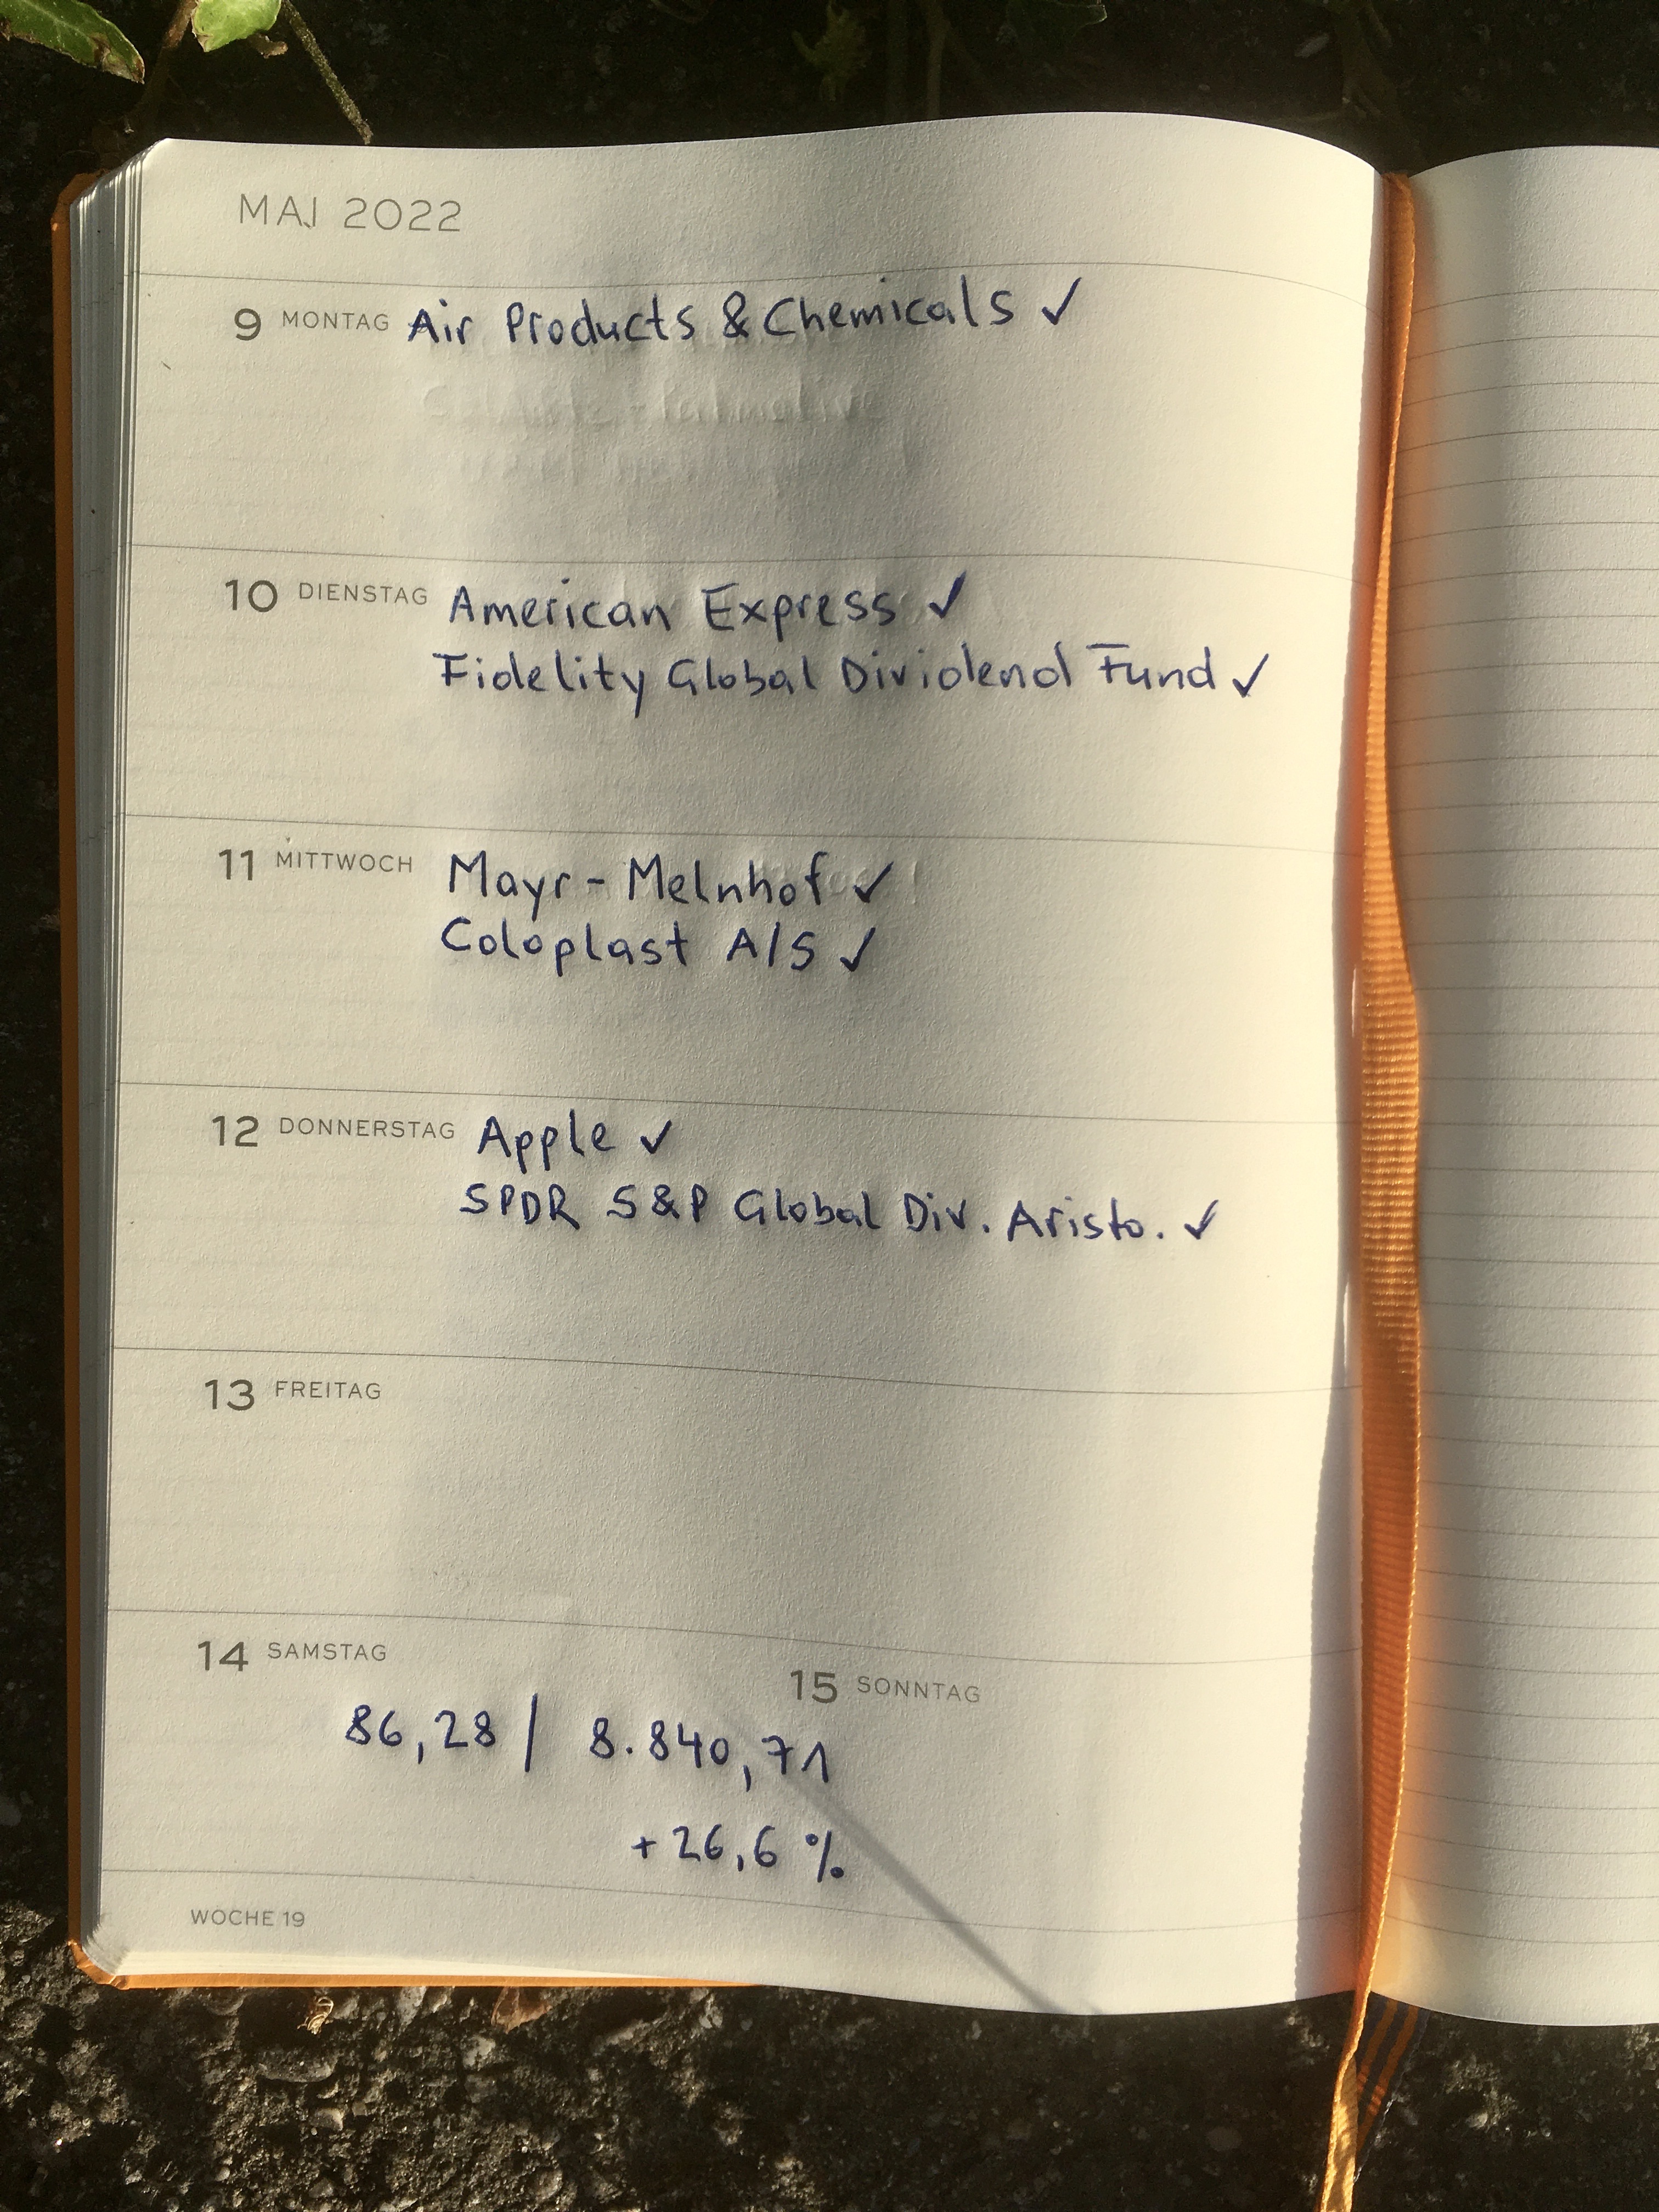 MAI 2022
9 MONTAG Air Products & Chemicals ✓
10 DIENSTAG American Express ✓
Fidelity Global Dividend Fund ✓
11 MITTWOCH Mayr-Melnhof ✓
Coloplast A/S ✓
12 DONNERSTAG Apple ✓
SPDR S&P Global Div. Aristo. ✓
13 FREITAG
14 SAMSTAG
15 SONNTAG
86,28 / 8.840,71
+26,6 %
WOCHE 19